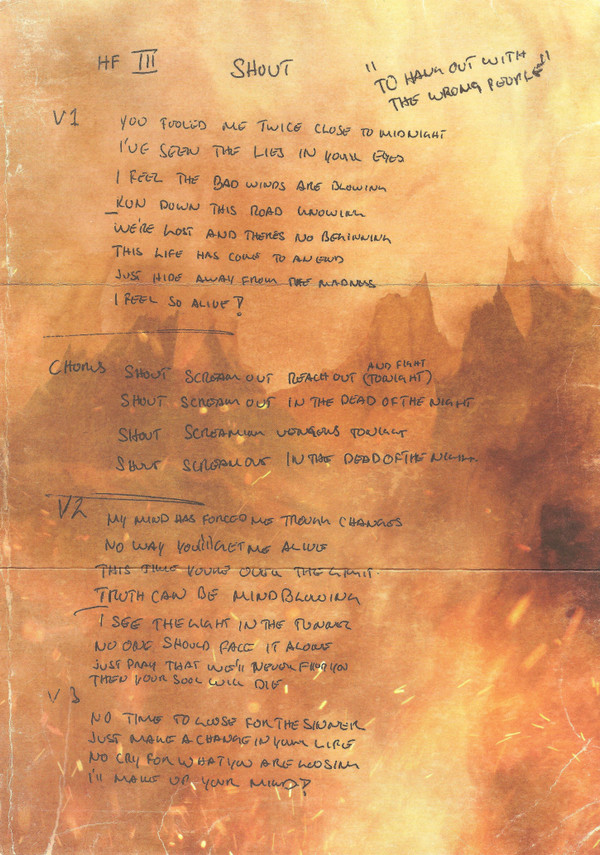 HF III SHOUT
"TO HANG OUT WITH
THE WRONG PEOPLE"
V1 YOU FOOLED ME TWICE CLOSE TO MIDNIGHT
I'VE SEEN THE LIES IN YOUR EYES
I FEEL THE BAD WINDS ARE BLOWING
RUN DOWN THIS ROAD KNOWING
WE'RE LOST AND THERES NO BEGINNING
THIS LIFE HAS COME TO AN END
JUST HIDE AWAY FROM THE MADNESS
I FEEL SO ALIVE!
AND FIGHT
CHORUS SHOUT SCREAM OUT REACH OUT (TONIGHT)
SHOUT SCREAM OUT IN THE DEAD OF THE NIGHT
SHOUT SCREAMIN VENGENS TONIGHT
SHOUT SCREAM OUT IN THE DEAD OF THE NIGHT
V2 MY MIND HAS FORCED ME TROUGH CHANGES
NO WAY YOU'LL GET ME ALIVE
THIS TIME YOU'RE OVER THE LIMIT
TRUTH CAN BE MINDBLOWING
I SEE THE LIGHT IN THE TUNNEL
NO ONE SHOULD FACE IT ALONE
JUST PRAY THAT WE'LL NEVER FIND YOU
THEN YOUR SOUL WILL DIE
V3
NO TIME TO LOOSE FOR THE SINNER
JUST MAKE A CHANGE IN YOUR LIFE
NO CRY FOR WHAT YOU ARE LOOSING
I'LL MAKE UP YOUR MIND!